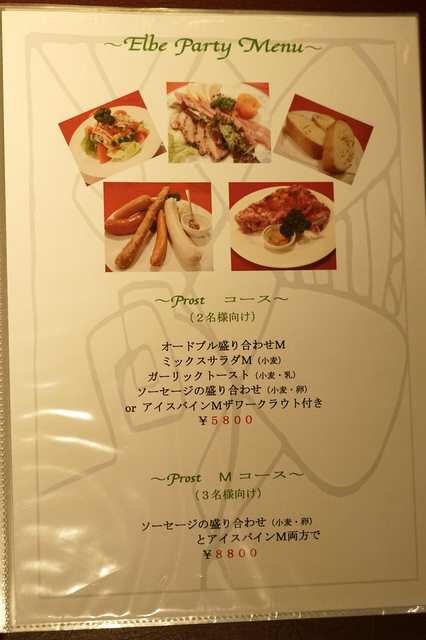 ～Elbe Party Menu～
～Prost コース～
(２名様向け)
オードブル盛り合わせM
ミックスサラダM (小麦)
ガーリックトースト (小麦・乳)
ソーセージの盛り合わせ (小麦・卵)
or アイスバインMザワークラウト付き
￥5800
～Prost Mコース～
(３名様向け)
ソーセージの盛り合わせ (小麦・卵)
とアイスバインM両方で
￥8800